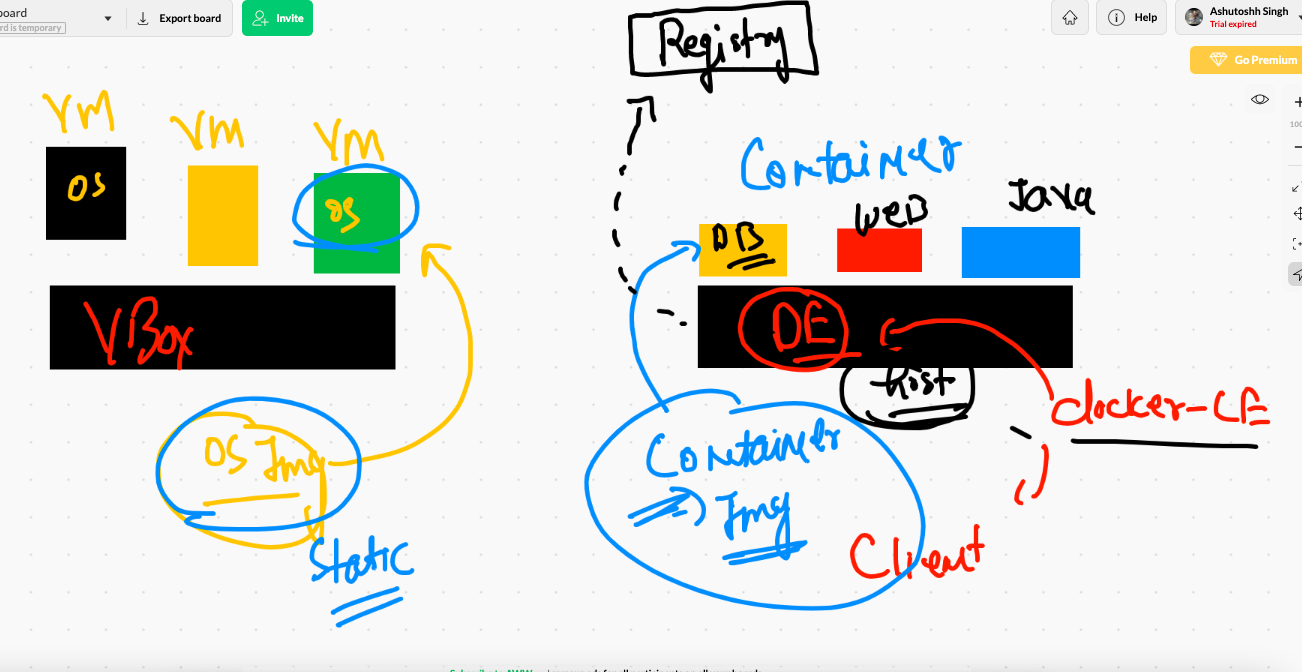 board
rd is temporary
Export board
Invite
Help
Ashutoshh Singh
Trial expired
Go Premium
100
Registry
VM
VM
VM
OS
OS
VBox
OS Img
Static
Container
DB
WEB
Java
DE
Host
docker-CE
Container
Img
Client